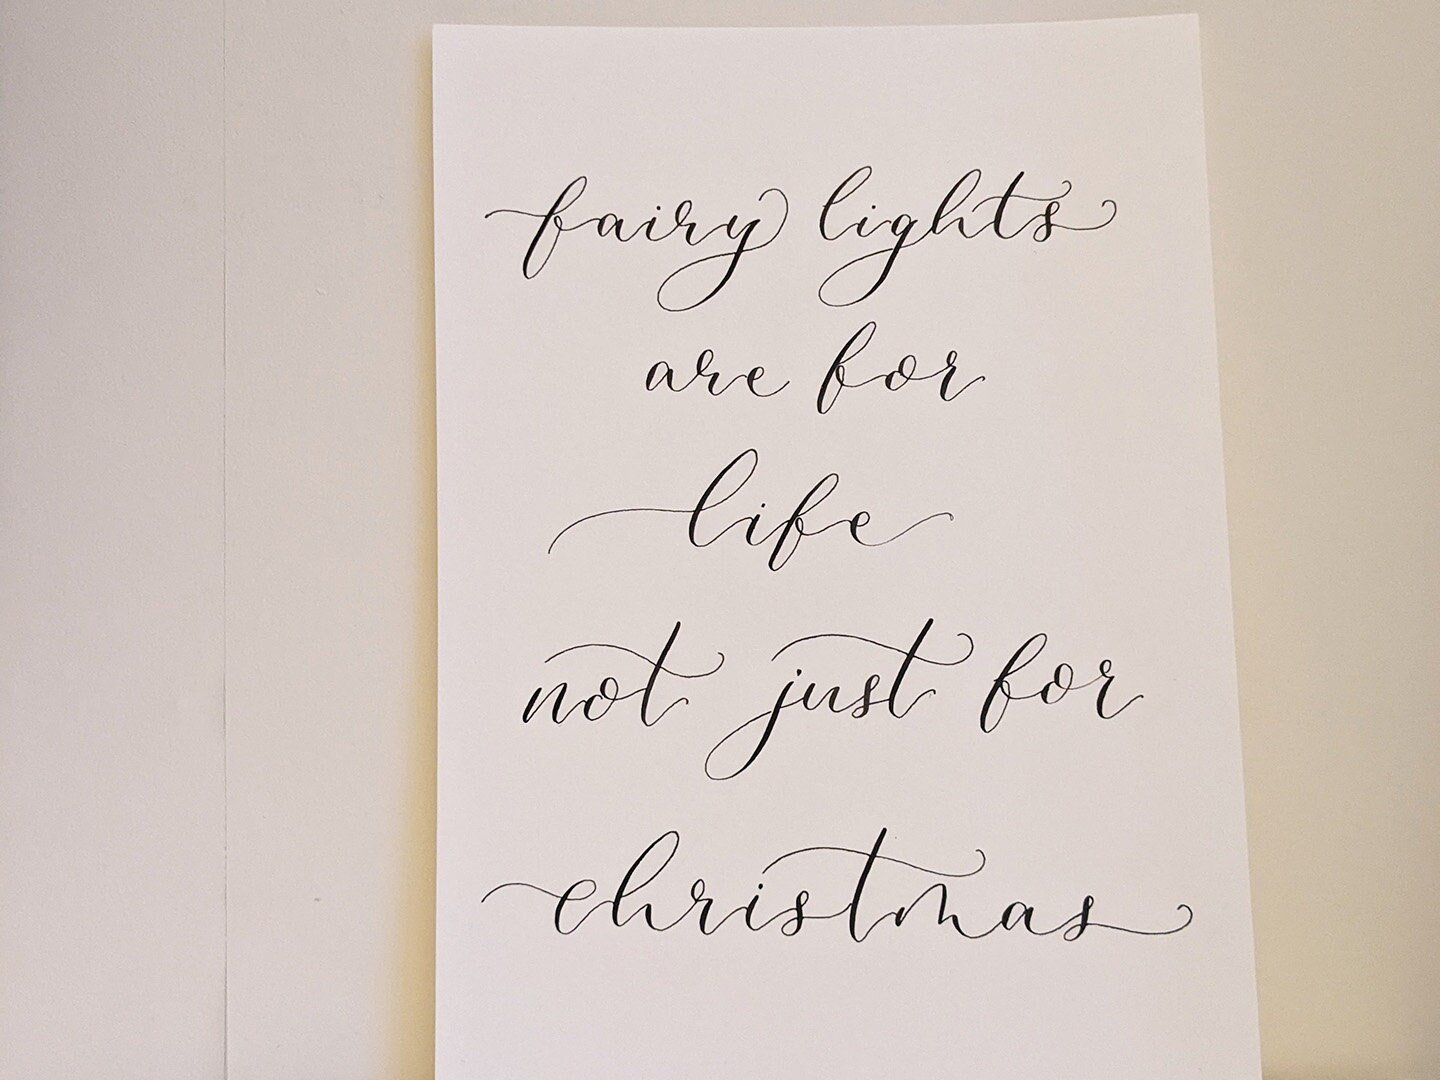 fairy lights
are for
life
not just for
christmas